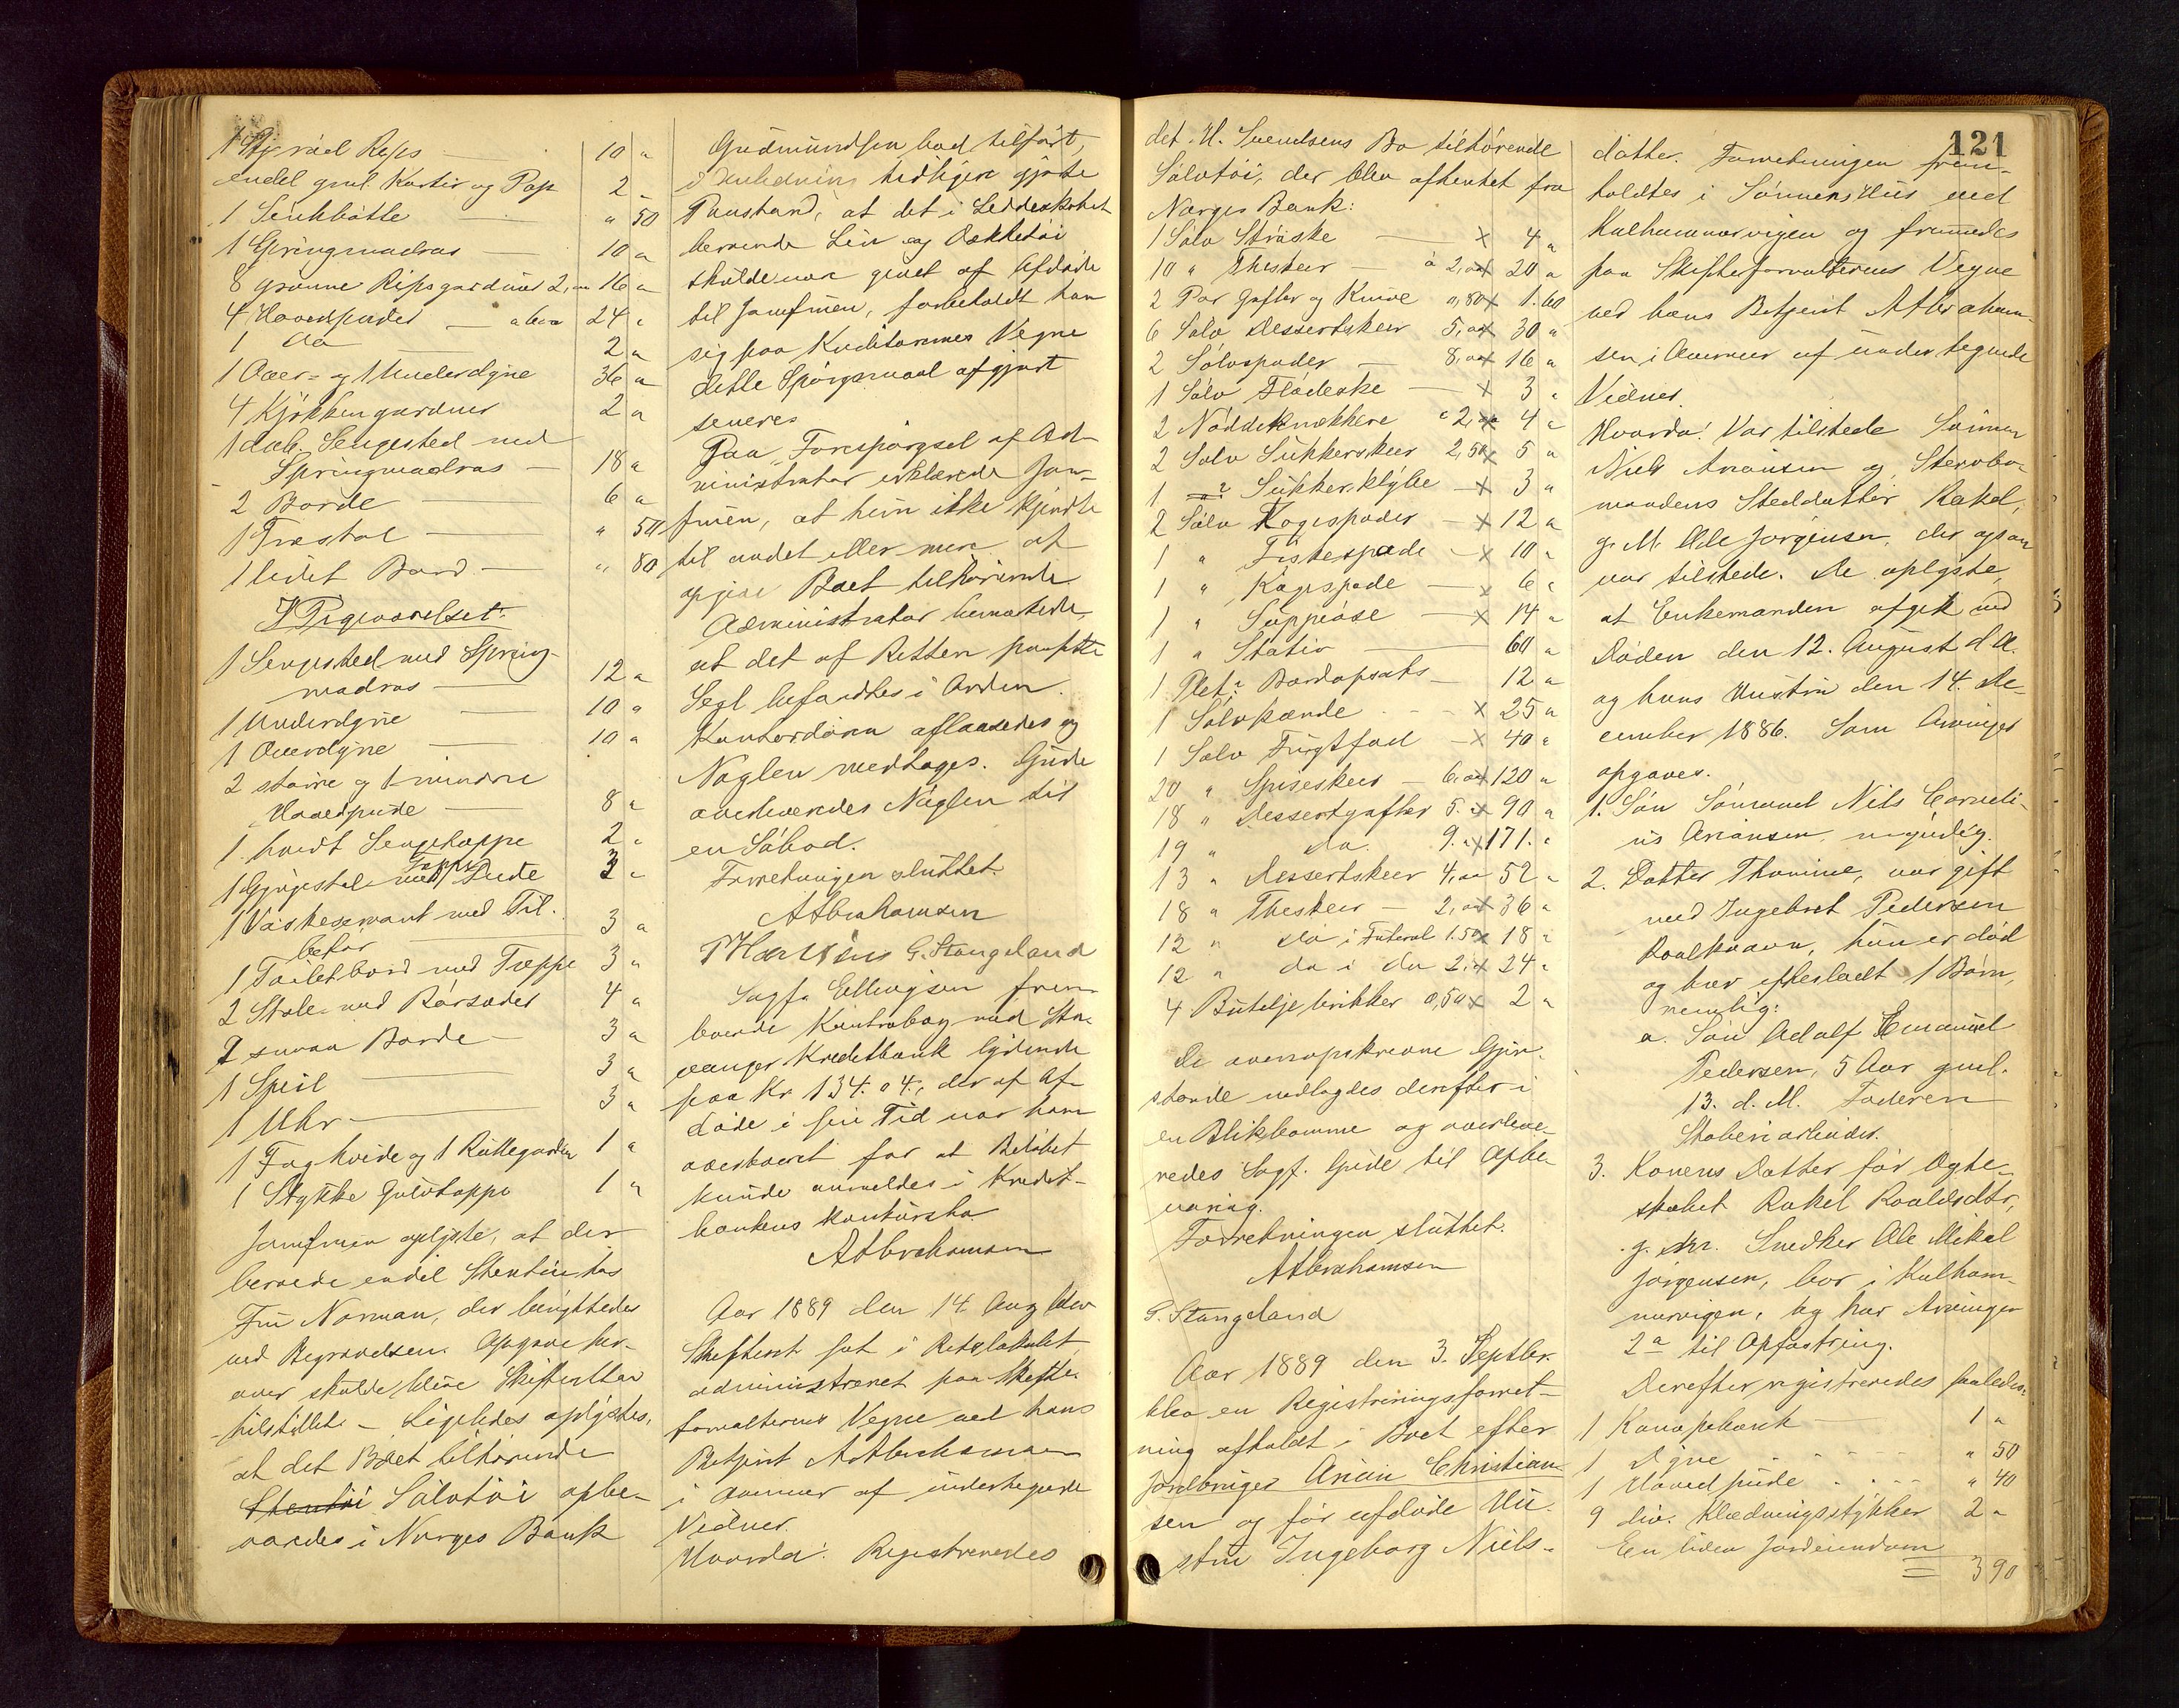 Reps 10 "
endel gml. Kartir og Pap 2 "
1 Senkbøtte " 50
1 Springmadras 10 "
8 grønne Ripsgardiner 2, 16 "
4 Hovedpuder 24 "
1 do 2 "
1 Over- og 1 Underdyne 36 "
4 Kjøkkengardiner 2 "
1 dob. Sengested med
Springmadras 18 "
2 Borde 6 "
1 Træstol " 50
1 lidet Bord " 80
I Pigeværelset:
1 Sengested med Spring-
madras 12 "
1 Underdyne 10 "
1 Overdyne 10 "
2 større og 1 mindre
Hovedpude 8 "
1 hvidt Sengetæppe 2 "
1 Gyngestol med Tæppe Pude 3 "
1 Vaskeservant med Til-
behør 3 "
1 Toiletbord med Tæppe 3 "
2 Stole med Rørsæder 4 "
2 smaa Borde 3 "
1 Speil 3 "
1 Uhr 3 "
1 Fag hvide og 1 Rullegardin 1 "
1 Stykke Gulvtæppe 1 "
Jomfruen oplyste, at der
beroede endel Stentøi hos
Fru Norman, der benyttedes
ved Begravelsen. Opgave her-
over skulde blive Skifteretten
tilstillet. – Ligeledes oplystes,
at det Boet tilhørende
Stentøi Sølvtøi opbe-
varedes i Norges Bank
Gudmundsen bad tilført,
i Anledning tidligere gjorte
Paastand, at det i Leddeskabet
beroende Lin og Dækketøi
skulde være givet af Afdøde
til Jomfruen, forbeholdt han
sig paa Kreditorernes Vegne
dette Spørgsmaal afgjort
senere.
Paa Forespørgsel af Ad-
ministrator erklærede Jom-
fruen, at hun ikke kjendte
til andet eller mere at
opgive Boet tilhørende.
Administrator bemærkede,
at det af Retten paasatte
Segl befandtes i Orden.
Kontordøren aflaasedes og
Nøglen medtoges. Gude
overleveredes Nøglen til
en Sobod.
Forretningen sluttet.
A Abrahamsen
G. Stangeland
Sagf. Ellingsen frem-
lagde Kontrabog med Sta-
vanger Kreditbank lydende
paa Kr 134.04, der af Af-
døde i sin Tid var ham
overleveret for at Beløbet
kunde anmeldes i Kredit-
bankens Konkursbo.
A Abrahamsen
Aar 1889 den 14 Aug blev
Skifteret sat i Retslokalet,
administreret paa Skifte-
forvalterens Vegne ved hans
Betjent A Abrahamsen
i Overvær af undertegnede
Vidner.
Hvorda: Registreredes
121
det H. Svendsens Bo tilhørende
Sølvtøi, der blev afhentet fra
Norges Bank:
1 Sølv Strøske × 4 "
10 " Theskeer a 2,00 × 20 "
2 Par Gafler og Knive 0,80 × 1.60
6 Sølv Dessertskeer 5,00 × 30 "
2 Sølvspader 8,00 × 16 "
1 Sølv Flødeske × 3 "
2 Nøddeknækkere a 2,00 4 "
2 Sølv Sukkerskeer 2,50 × 5 "
1 " Sukkerklype × 3 "
2 Sølv Kagespader × 12 "
1 " Fiskespade × 10 "
1 " Kagespade × 6 "
1 " Suppeøse × 14 "
1 " Stativ 60 "
1 Plet: Bordopsats 12 "
1 Sølvkande × 25 "
1 Sølv Frugtfad × 40 "
20 " Spiseskeer 6,00 × 120 "
18 " Dessertgafler 5. × 90 "
19 " do. 9. × 171. "
13 " Dessertskeer 4,00 52 "
18 " Theskeer 2,00 × 36 "
12 " do i Futeral 1.50 × 18 "
12 " do i do 2. × 24 "
4 Buteljebrikker 0,50 × 2 "
De ovenopskrevne Gjen-
stande nedlagdes derefter i
en Blikkomme og overleve-
redes Sagf. Gude til Opbe-
varing.
Forretningen sluttet.
A Abrahamsen
G. Stangeland
Aar 1889 den 3. Septbr.
blev en Registreringsforret-
ning afholdt i Boet efter
Jordbruger Arian Christian-
sen og før afdøde Hu-
stru Ingeborg Niels-
datter. Forretningen frem-
holdtes i Sønnens Hus ved
Kulhammervigen og fremmedes
paa Skifteforvalterens Vegne
ved hans Betjent A Abraham-
sen i Overvær af undertegnede
Vidner.
Hvorda: Var tilstede Sønnen
Niels Ariansen og Stervbo-
mandens Steddatter Rakel,
g. M. Ole Jørgensen, der ogsaa
var tilstede. De oplyste,
at Enkemanden afgik ved
Døden den 12. August d. A.
og hans Hustru den 14. De-
cember 1886. Som Arvinger
opgaves.
1. Søn Sømand Nils Corneli-
us Ariansen, myndig.
2. Datter Thomine, var gift
med Ingebret Pedersen
Roalkvam, hun er død
og har efterladt 1 Barn,
nemlig:
a. Søn Adolf Emanuel
Pedersen, 5 Aar gml.
13. d. M. Faderen
Støberiarbeider.
3. Konens Datter før Ægte-
skabet Rakel Roaldsdtr,
g. m. Snedker Ole Mikal
Jørgensen, bor i Kulham-
mervigen, og har Arvingen
2 a til Opfostring.
Derefter registreredes saaledes.
1 Kanapebænk 1 "
1 Dyne " 50
1 Hovedpude " 40
9 div. Klædningsstykker 2 "
En liden Jordeiendom
3 90